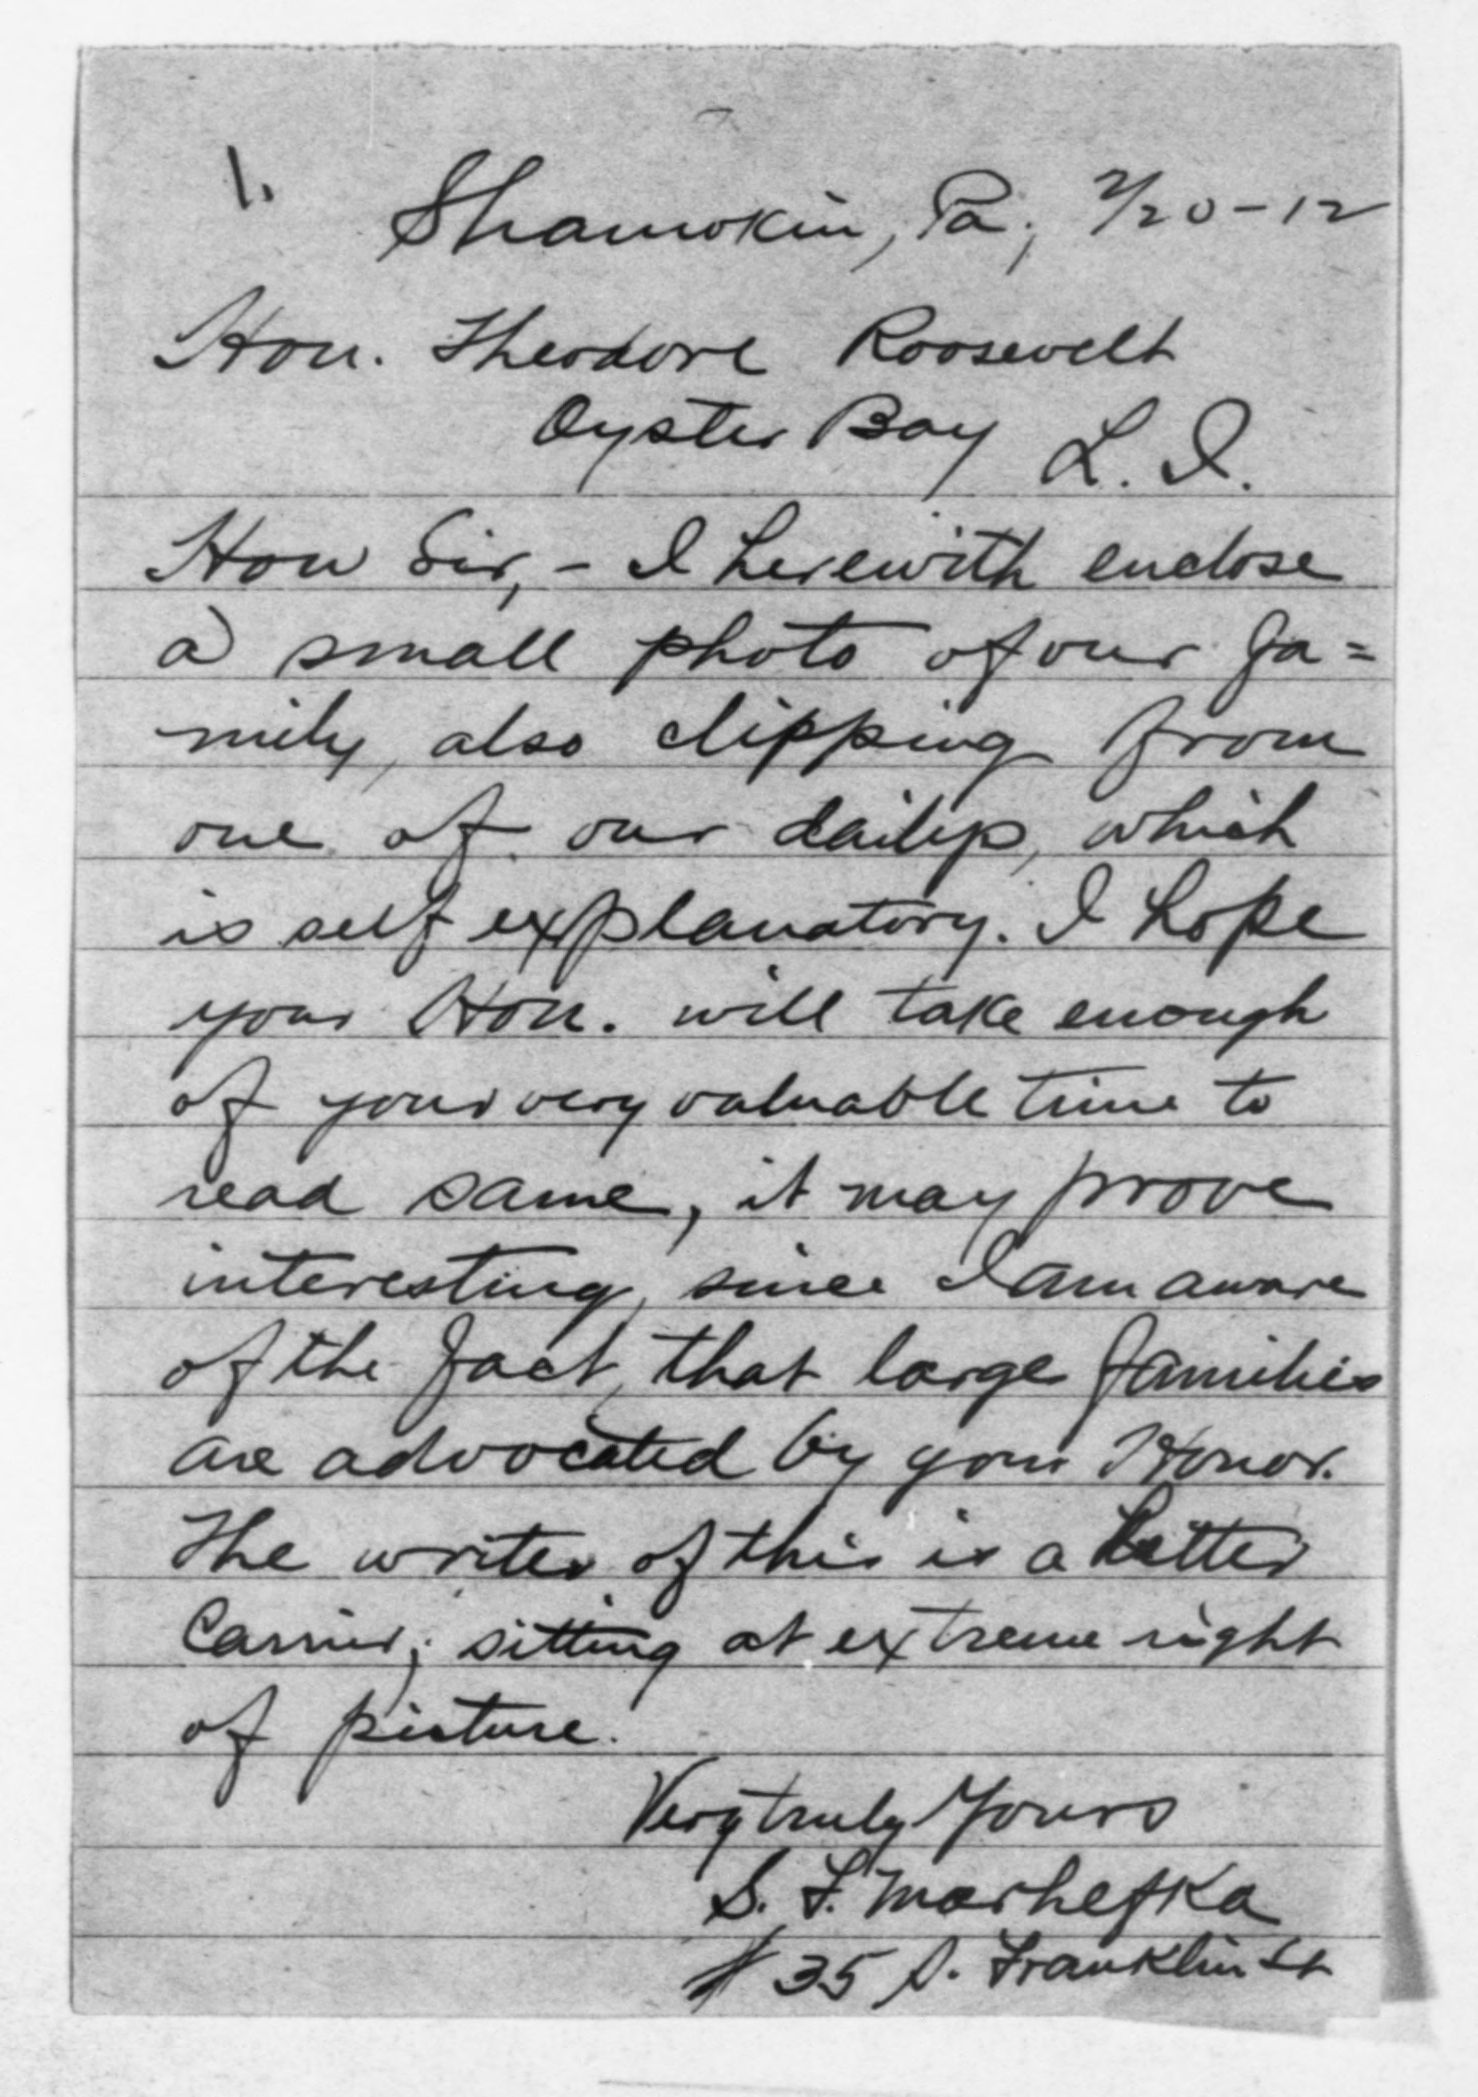 1.
Shamokin, Pa., 2/20-12
Hon. Theodore Roosevelt
Oyster Bay L. I.
Hon Sir, - I herewith enclose
a small photo of our fa=
mily, also clipping from
one of our dailys, which
is self explanatory. I hope
your Hon. will take enough
of your very valuable time to
read same, it may prove
interesting, since I am aware
of the fact, that large families
are advocated by your Honor.
The writer of this is a Letter
Carrier; sitting at extreme right
of picture.
Very truly Yours
S. F. Marhefka
# 35 S. Franklin St